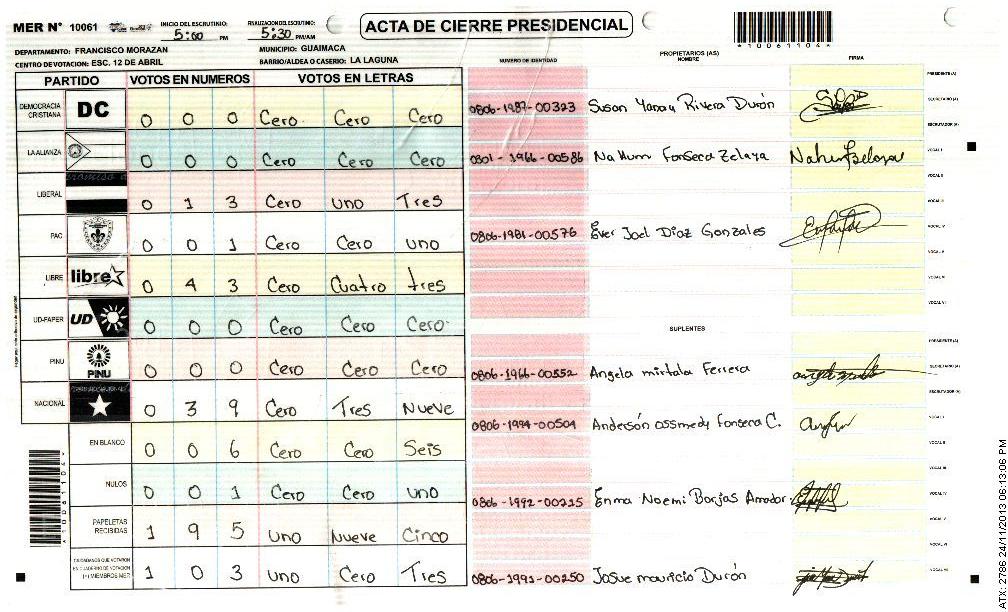 MER N° 10061 INICIO DEL ESCRUTINIO: 5:00 PM FINALIZACION DEL ESCRUTINIO: 5:30 PM/AM
ACTA DE CIERRE PRESIDENCIAL
*10061104*
DEPARTAMENTO: FRANCISCO MORAZAN MUNICIPIO: GUAIMACA
CENTRO DE VOTACION: ESC. 12 DE ABRIL BARRIO/ALDEA O CASERIO: LA LAGUNA
NUMERO DE IDENTIDAD PROPIETARIOS (AS) NOMBRE FIRMA
PARTIDO VOTOS EN NUMEROS VOTOS EN LETRAS
DEMOCRACIA CRISTIANA DC 0 0 0 Cero Cero Cero
LA ALIANZA 0 0 0 Cero Cero Cero
LIBERAL 0 1 3 Cero uno Tres
PAC 0 0 1 Cero Cero uno
LIBRE libre 0 4 3 Cero Cuatro tres
UD-FAPER UD 0 0 0 Cero Cero Cero
PINU PINU 0 0 0 Cero Cero Cero
NACIONAL 0 3 9 Cero Tres Nueve
EN BLANCO 0 0 6 Cero Cero Seis
NULOS 0 0 1 Cero Cero uno
PAPELETAS RECIBIDAS 1 9 5 uno Nueve Cinco
CIUDADANOS QUE VOTARON EN CUADERNO DE VOTACION (+) MIEMBROS MER 1 0 3 uno Cero Tres
*10061104*
PRESIDENTE (A)
0806-1987-00323 Susan Yanay Rivera Durón SECRETARIO (A)
ESCRUTADOR (A)
0301-1966-00586 Nahum Fonseca Zelaya VOCAL I
VOCAL II
VOCAL III
0806-1981-00576 Ever Joel Diaz Gonzales VOCAL IV
VOCAL V
VOCAL VI
VOCAL VII
SUPLENTES
PRESIDENTE (A)
0806-1966-00552 Angela mirtala Ferrera SECRETARIO (A)
ESCRUTADOR (A)
0806-1994-00504 Andersón ossmedy Fonseca C. VOCAL I
VOCAL II
VOCAL III
0806-1992-00215 Enma Noemi Borjas Amador VOCAL IV
VOCAL V
VOCAL VI
0806-1991-00250 Josue mauricio Durón VOCAL VII
ATX: 2786 24/11/2013 06:13:06 PM